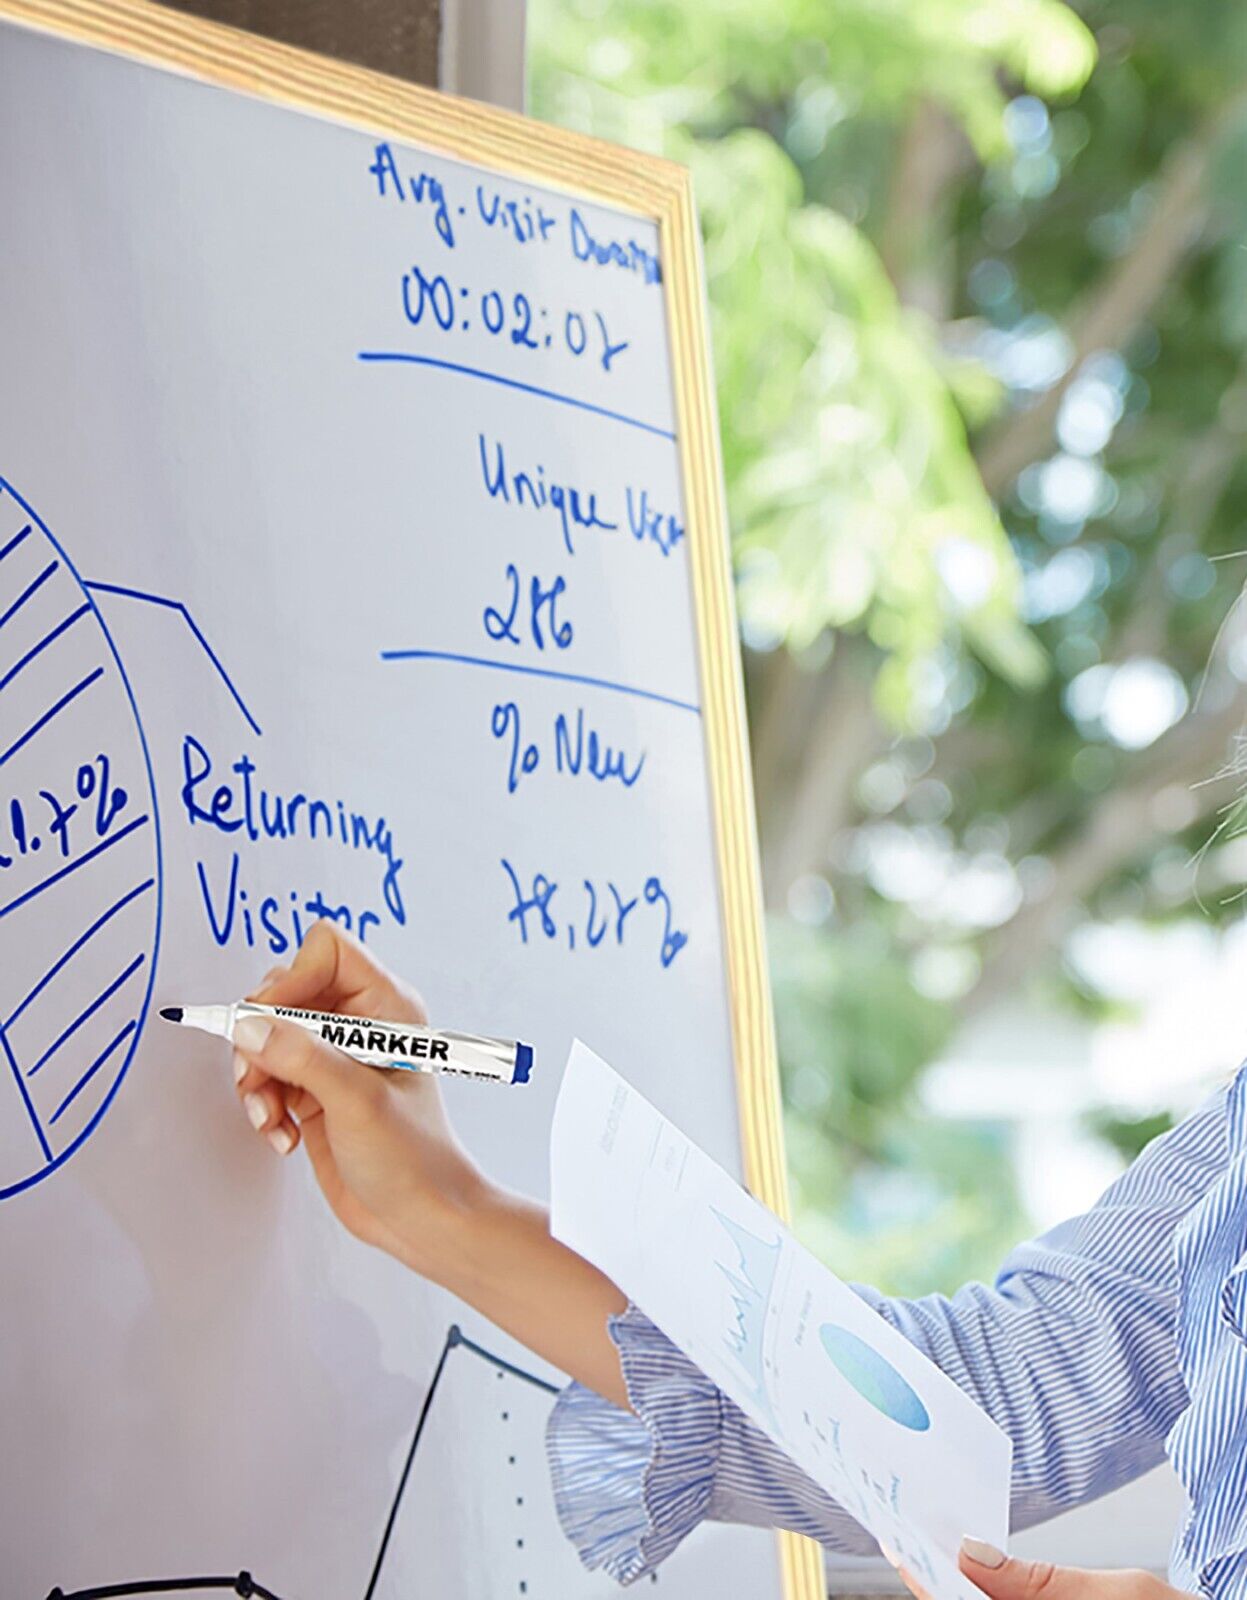 Avg. Visit
00:02:07
Unique
286
% New
1.7%
Returning
Visitor
78,27%
WHITEBOARD
MARKER